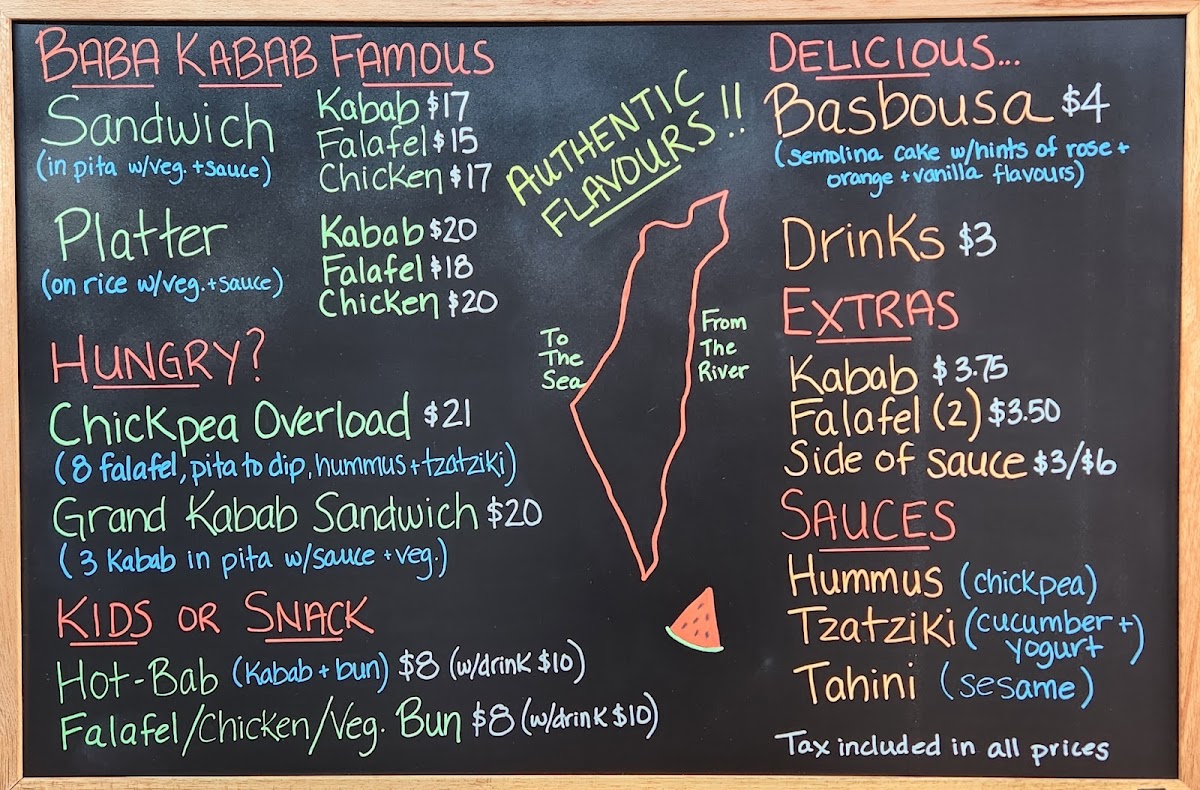 BABA KABAB FAMOUS
Sandwich
(in pita w/veg.+sauce)
Kabab $17
Falafel $15
Chicken $17
Platter
(on rice w/veg.+sauce)
Kabab $20
Falafel $18
Chicken $20
HUNGRY?
Chickpea Overload $21
(8 falafel, pita to dip, hummus + tzatziki)
Grand Kabab Sandwich $20
(3 Kabab in pita w/sauce + veg.)
KIDS OR SNACK
Hot-Bab (Kabab + bun) $8 (w/drink $10)
Falafel/Chicken/Veg. Bun $8 (w/drink $10)
AUTHENTIC
FLAVOURS!!
To
The
Sea
From
The
River
DELICIOUS...
Basbousa $4
(semolina cake w/hints of rose +
orange + vanilla flavours)
Drinks $3
EXTRAS
Kabab $3.75
Falafel (2) $3.50
Side of sauce $3/$6
SAUCES
Hummus (chickpea)
Tzatziki (cucumber +
yogurt)
Tahini (sesame)
Tax included in all prices